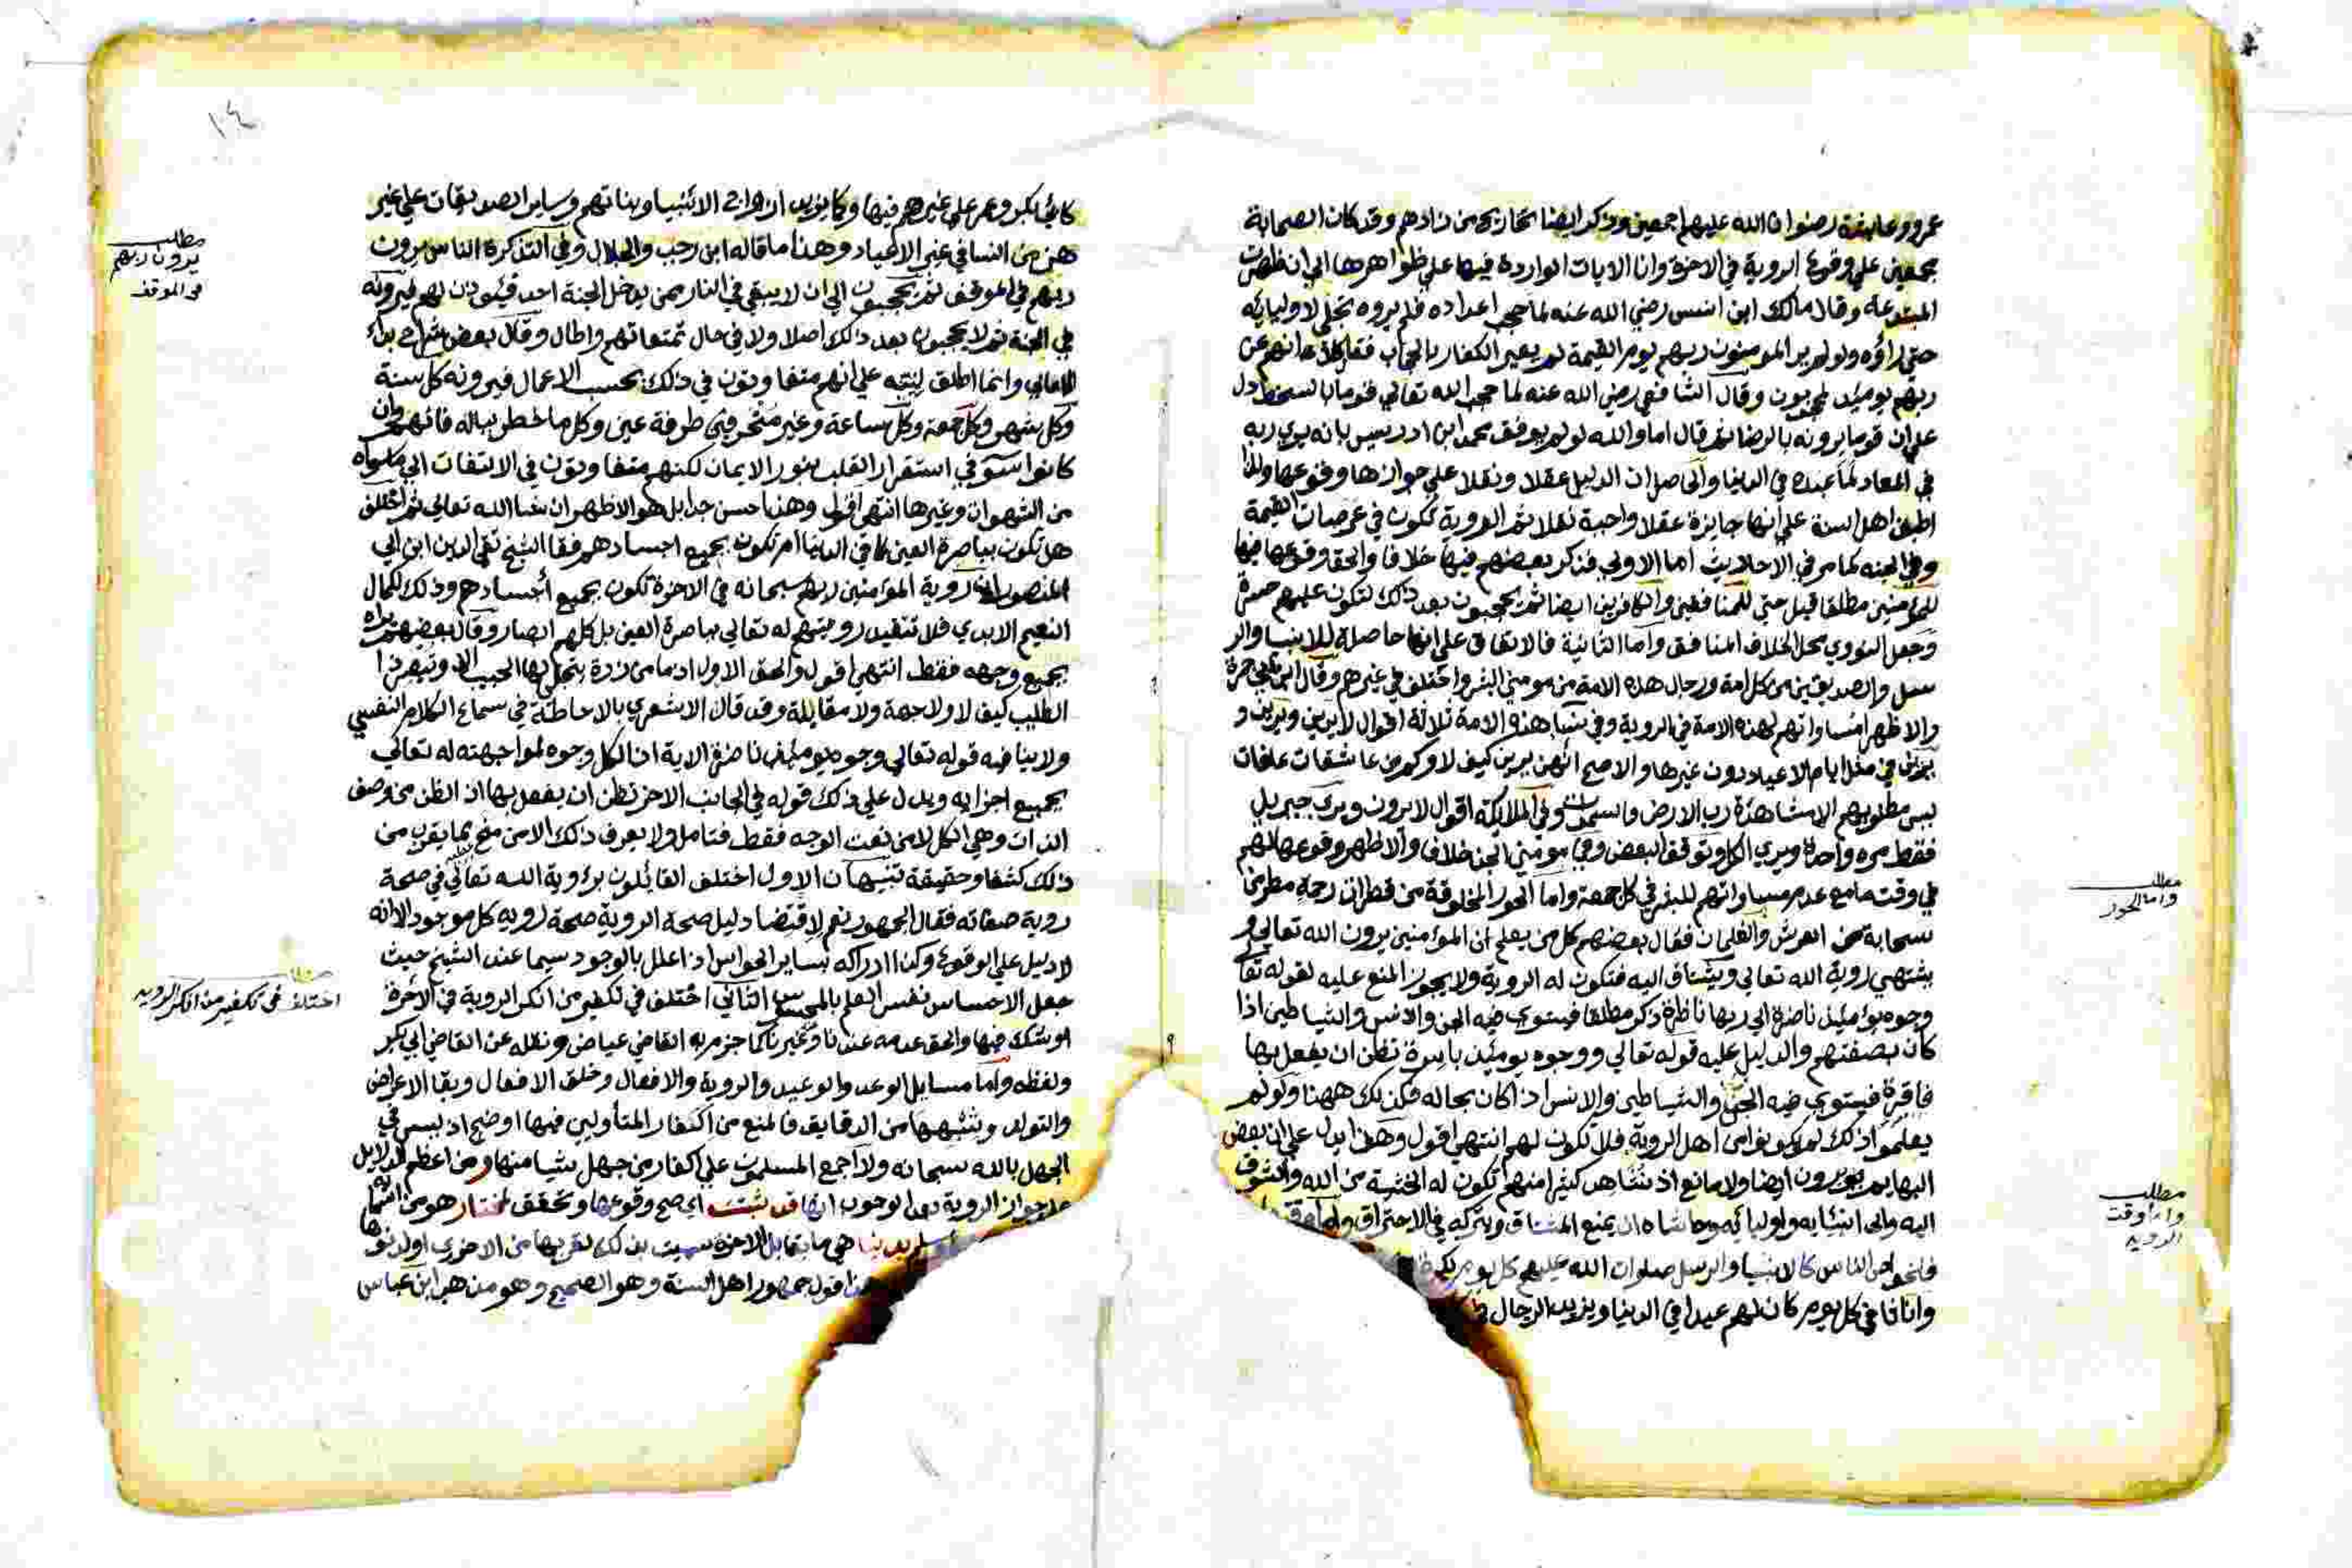 عمرو وعايشة رضوان الله عليهم اجمعين وذكر ايضا تخاريجه من زادهم وقد كان الصحابة
مجمعين علي وقوع الروية في الاخرة وان الايات الواردة فيها علي ظواهرها الي ان ظهرت
المبتدعة وقال مالك ابن انس رضي الله عنه لما حجب اعداءه فلم يروه تجلي لاوليايه
حتي راؤه ولو لم ير المومنون ربهم يوم القيمة لم يعير الكفار بالحجاب فقال كلا انهم عن
ربهم يوميذ لمحجوبون وقال الشافعي رضي الله عنه لما حجب الله تعالي قوما بالسخط دل
علي ان قوما يرونه بالرضا ثم قال اما والله لو لم يوقن محمد ابن ادريس بانه يري ربه
في المعاد لما عبده في الدنيا والحاصل ان الدليل عقلا ونقلا علي جوازها ووقوعها ولذا
اطبق اهل السنة علي انها جايزة عقلا واجبة نقلا ثم الروية تكون في عرصات القيمة
وفي الجنه كما مر في الاحاديث اما الاولي فذكر بعضهم فيها خلافا والحق وقوعها فيها
للمومنين مطلقا قيل حتي للمنافقين والكافرين ايضا ثم يحجبون بعد ذلك لتكون عليهم حسرة
وجعل النووي محل الخلاف المنافق واما الثانية فالاتفاق علي انها حاصلة للانبيا والر
سل والصديقين من كل امة ورجال هذه الامة من مومني البشر واختلف في غيرهم وقال ابن ابي جمرة
والاظهر مساواتهم لهذه الامة في الروية وفي نسا هذه الامة ثلاثة اقوال لا يرين ويرين و
يرين في مثل ايام الاعياد دون غيرها والاصح انهن يرين كيف لا وكم من عاشقات
ليس مطلوبهم الا مشاهدة رب الارض والسموات وفي الملايكة اقوال لا يرون ويري جبريل
فقط مره واحدة ويري الكل وتوقف البعض وفي مومني الجن خلاف والاظهر وقوعها لهم
في وقت ما مع عدم مساواتهم للبشر في كل جمعة واما الحور المخلوقة من قطرات رحمة مطر من
سحابة من العرش والغلمان فقال بعضهم كل من يعلم ان المؤمنين يرون الله تعالي و
يشتهي روية الله تعالي ويشتاق اليه فتكون له الروية ولا يجوز المنع عليه لقوله تعا
وجوه يوميذ ناضرة الي ربها ناظرة ذكر مطلقا فيستوي فيه الجن والانس والشياطين اذا
كان بصفتهم والدليل عليه قوله تعالي ووجوه يوميذ باسرة تظن ان يفعل بها
فاقرة فيستوي فيه الجن والشياطين والانس اذا كان بحاله فكذلك ههنا ولو لم
يعلموا ذلك لم يكونوا من اهل الروية فلا تكون لهم انتهي اقول وهذا يدل علي ان بعض
البهايم يرون ايضا ولا مانع اذ نشاهد كثيرا منهم تكون له الخشية من الله والشوق
اليه والي انبيايه واوليايه وحاشاه ان يمنع المشتاق ويتركه في الاحتراق واما
فلخواص الناس كالانبيا والرسل صلوات الله عليهم كل يوم
واناثا في كل يوم كان لهم عيدا في الدنيا ويزيد الرجال في
مطلب
واما الحور
مطلب
واما وقت
الرويه
١٤
كابي بكر وعمر علي غيرهم فيها وكا يزيد ازواج الانبيا وبناتهم وساير الصديقات علي غير
هن من النسا في غير الاعياد وهذا ما قاله ابن رجب والجلال وفي التذكرة الناس يرون
ربهم في الموقف ثم يحجبون الي ان لا يبقي في النار ممن يدخل الجنة احد فيؤذن لهم فيرونه
في الجنة ثم لا يحجبون بعد ذلك اصلا ولا في حال تمتعاتهم واطال وقال بعض شراح بدا
الامالي وانما اطلق لينبه علي انهم متفاوتون في ذلك بحسب الاعمال فيرونه كل سنة
وكل شهر وكل جمعة وكل ساعة وغير طرفة عين وكل ما خطر بباله فانهم وان
كانوا سوآ في استقرار القلب بنور الايمان لكنهم متفاوتون في الالتفات الي ما سواه
من الشهوات وغيرها انتهي اقول وهذا حسن جدا بل هو الاظهر ان شا الله تعالي ثم اختلف
هل تكون بباصرة العين كما في الدنيا ام تكون بجميع اجسادهم فقال الشيخ تقي الدين ابن ابي
المنصور ان روية المؤمنين ربهم سبحانه في الاخرة تكون بجميع أجسادهم وذلك لكمال
النعيم الابدي فلا تتقيد رويتهم له تعالي بباصرة العين بل كلهم ابصار وقال بعضهم يراه
بجميع وجهه فقط انتهي اقول والحق الاول اذ ما من ذرة يتجلي بها الحبيب الا وتبصر ذا
الطلب كيف لا ولا جهة ولا مقابلة وقد قال الاشعري بالاحاطة في سماع الكلام النفسي
ولا ينافيه قوله تعالي وجوه يوميذ ناضرة الاية اذ الكل وجوه لمواجهته له تعالي
بجميع اجزايه ويدل علي ذلك قوله في الجانب الاخر تظن ان يفعل بها اذ الظن من وصف
الذات وهي الكل لا من نعت الوجه فقط فتامل ولا يعرف ذلك الا من منح بما يقرب من
ذلك كشفا وحقيقة تنبيهان الاول اختلف القائلون برؤية الله تعالي في صحة
روية صفاته فقال الجمهور نعم لاقتضا دليل صحة الروية صحة رويه كل موجود الا انه
لا دليل علي الوقوع وكذا ادراكه بساير الحواس اذا علل بالوجود سيما عند الشيخ حيث
جعل الاحساس نفس العلم بالمحسوس الثاني اختلف في تكفير من انكر الروية في الاخرة
او شك فيها والحق عدمه عندنا وغيرنا كما جزم به القاضي عياض ونقله عن القاضي ابي بكر
ولفظه واما مسايل الوعد والوعيد والروية والافعال وخلق الافعال وبقا الاعراض
والتولد وشبهها من الدقايق فالمنع من اكفار المتأولين فيها اوضح اذ ليس في
الجهل بالله سبحانه ولا اجمع المسلمون علي اكفار من جهل شيا منها ومن اعظم الدلايل
علي جواز الروية انها قد ثبتت اي صح وقوعها وتحقق لمختار هو من اسما
بدنيا هي ما يقابل الاخرة سميت بذلك لقربها من الاخري اولدنوها
هذا قول جمهور اهل السنة وهو الصحيح وهو مذهب ابن عباس
مطلب
يرون ربهم
في الموقف
اختلف في تكفير من انكر الرويه